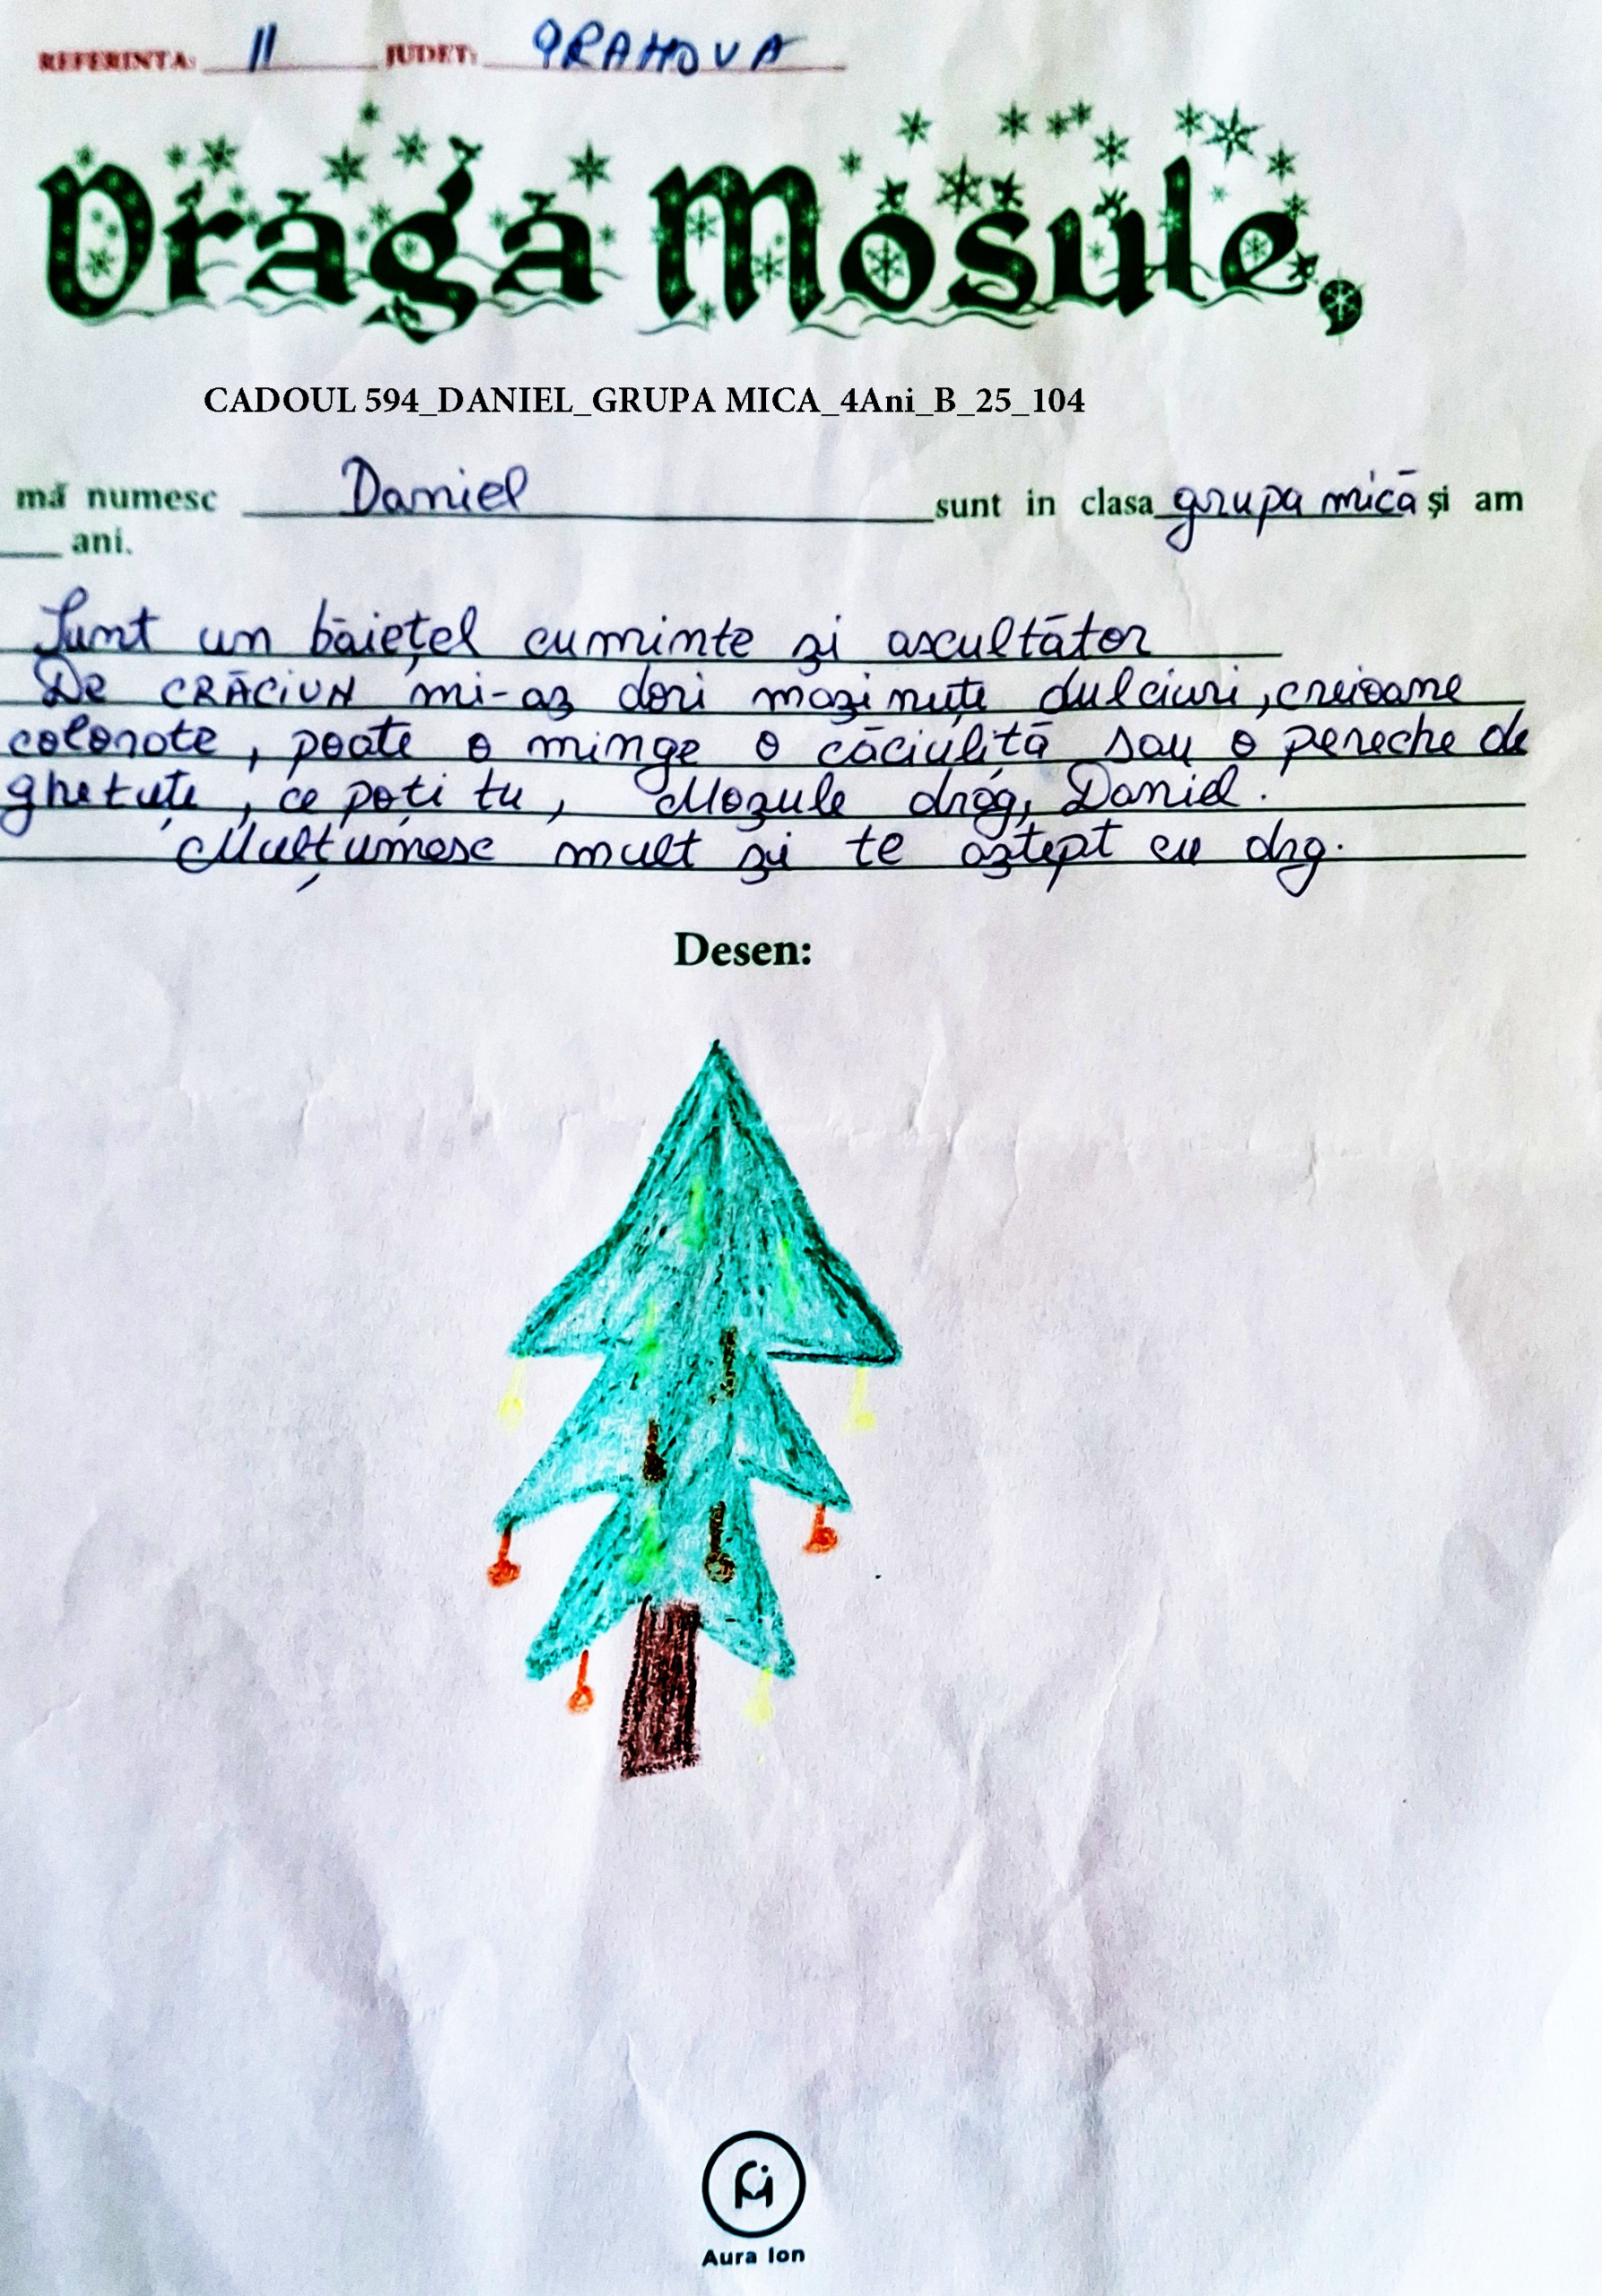 REFERINTA: 11 JUDET: PRAHOVA
Draga Mosule,
CADOUL 594_DANIEL_GRUPA MICA_4Ani_B_25_104
mă numesc Daniel sunt in clasa grupa mică și am
ani.
Sunt un băiețel cuminte și ascultător
De CRĂCIUN mi-aș dori mașinuțe dulciuri, creioane
colorate, poate o minge o căciuliță sau o pereche de
ghetuțe, ce poți tu, Moșule drag, Daniel.
Mulțumesc mult și te aștept cu drg.
Desen:
Aura Ion